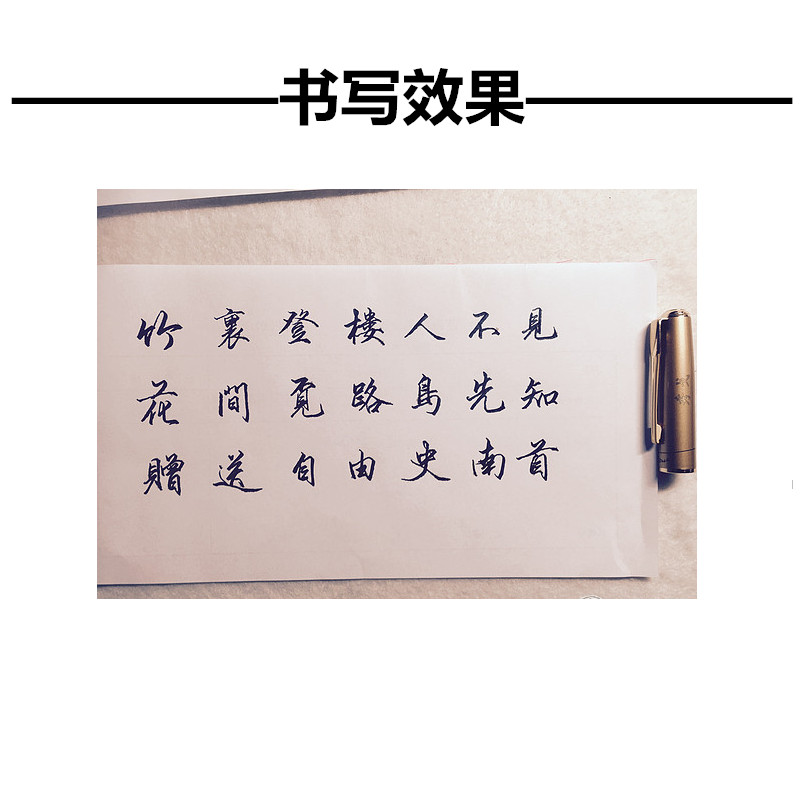 书写效果
竹裏登楼人不見
花間覓路鳥先知
贈送自由史南首